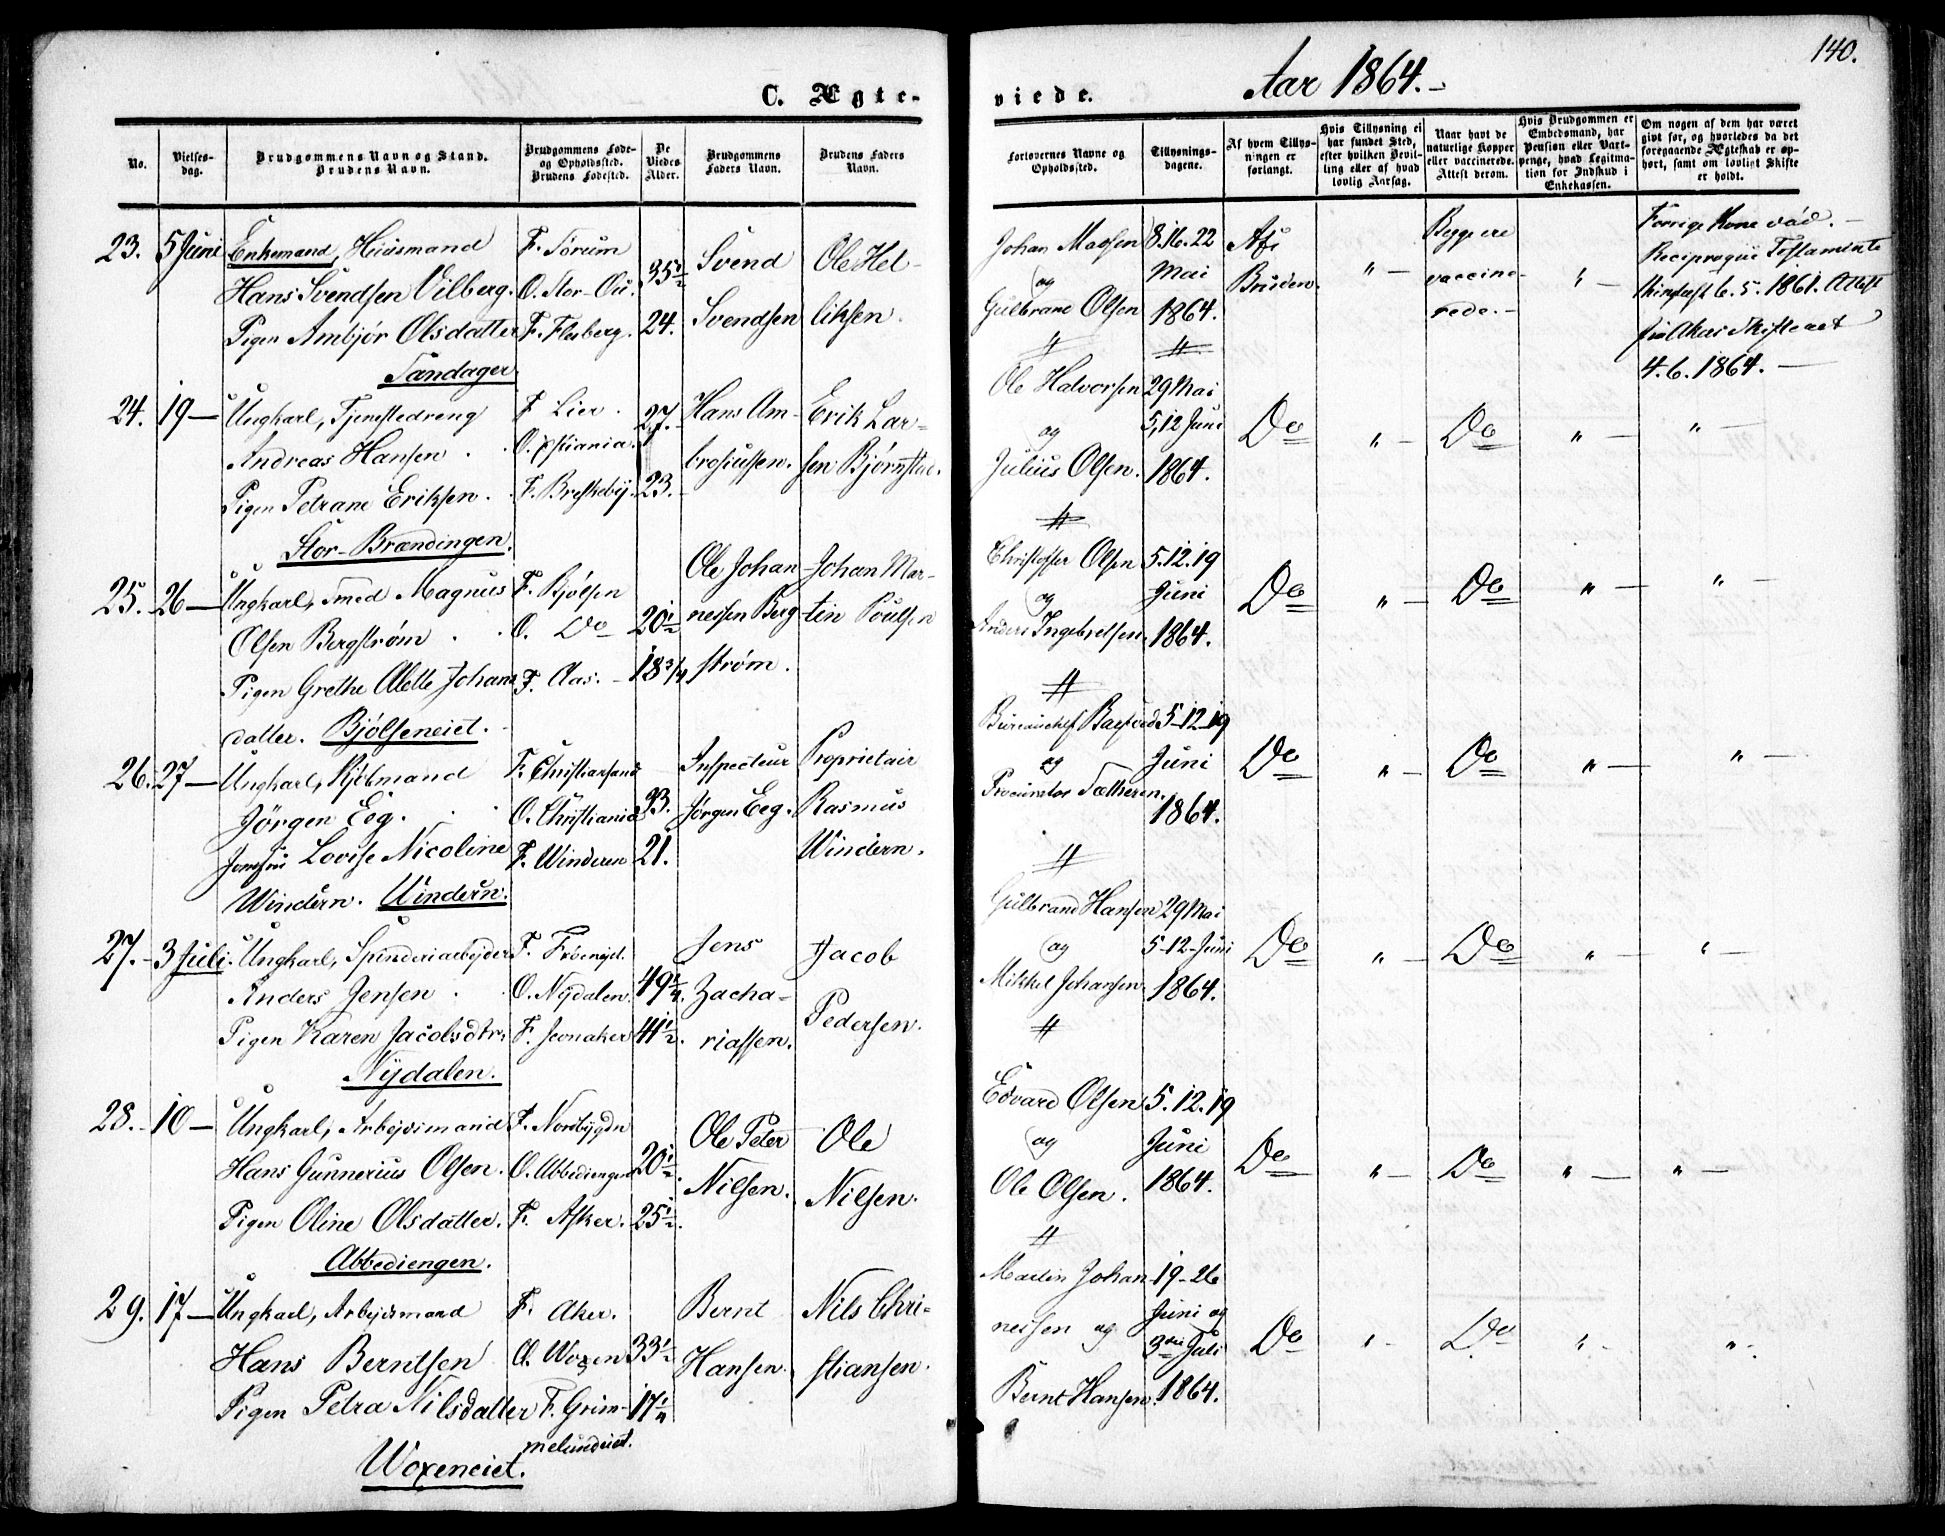 140.
C. Ægte-
viede.
Aar 1864.-
No.
Vielses-
dag.
Brudgommens Navn og Stand.
Brudens Navn.
Brudgommens Føde-
og Opholdssted.
Brudens Fødested.
De
Viedes
Alder.
Brudgommens
Faders Navn.
Brudens Faders
Navn.
Forlovernes Navne og
Opholdssted.
Tillysnings-
dagene.
Af hvem Tillys-
ningen er
forlangt.
Hvis Tillysning ei
har fundet Sted,
efter hvilken Bevil-
ling eller af hvad
lovlig Aarsag.
Naar havt de
naturlige Kopper
eller vaccinerede.
Attest derom.
Hvis Brudgommen er
Embedsmand, har
Pension eller Vart-
penge, hvad Legitima-
tion for Indskud i
Enkekassen.
Om nogen af dem har været
givt før, og hvorledes da det
foregaaende Ægteskab er op-
hørt, samt om lovligt Skifte
er holdt.
23. 5 Juni Enkemand, Huusmand
Hans Svendsen Vilberg.
Pigen Ambjør Olsdatter
Sandager
F. Sørum
O. Stor-Ou.
F. Flesberg.
35½
24.
Svend
Svendsen
Ole Hel-
liksen.
Johan Madsen
og
Gulbrand Olsen
8.16.22
Mai
1864.
Af
Bruden.
" -
Begge ere
vaccine-
rede.-
" -
Forrige Kone død.-
Reciproque Testamente
thinglæst 6.5.1861. Attest
fra Akers Skifteret
4.6.1864.-
24. 19- Ungkarl, Tjenestedreng
Andreas Hansen
Pigen Petrane Eriksen.
Stor-Brændingen.
F. Lier.
O. Xstiania.
F. Breskeby.
27.
23.
Hans Am-
brosiussen.
Erik Lar-
sen Bjørnstad.
Ole Halvorsen
og
Julius Olsen.
29 Mai
5,12 Juni
1864.
Do
" -
Do
" -
" -
25. 26- Ungkarl, Smed Magnus
Olsen Bergstrøm
Pigen Grethe Alette Johans
datter. Bjølseneiet.-
F. Bjølsen
O. Do
F. Aas.-
20½
18¾
Ole Johan-
nessen Berg
strøm.
Johan Mar-
tin Poulsen
Christoffer Olsen
og
Anders Ingebretsen
5.12.19
Juni
1864.
Do
" -
Do
" -
" -
26. 27- Ungkarl, Kjøbmand
Jørgen Eeg.
Jomfru Lovise Nicoline
Windern. Windern.
F. Christiansand
O. Christiania
F. Winderen
33.
21.
Inspecteur
Jørgen Eeg.
Proprietair
Rasmus
Windern.
Bureauchef Barfoed
og
Procurator Sætheren.
5-12-19
Juni
1864.
Do
" -
Do
" -
" -
27.- 3 Juli. Ungkarl, Spinderiarbejder
Anders Jensen
Pigen Karen Jacobsdtr.
Nydalen.
O. Nydalen.
F. Jevnaker
49¼.
41½.
Jens
Zacha-
riassen.
Jacob
Pedersen.
Gulbrand Hansen
og
Mikkel Johansen
29 Mai
5-12-Juni
1864.
Do
" -
Do
" -
" -
28.- 10- Ungkarl, Arbejdsmand
Hans Gunnerius Olsen.
Pigen Oline Olsdatter.
Abbediengen.
F. Nordbygdn
O. Abbediengen
F. Asker.
20½.
25½.
Ole Peter
Nilsen.
Ole
Nilsen.
Edvard Olsen
og
Ole Olsen.
5.12.19
Juni
1864.
Do
" -
Do
" -
" -
29. 17- Ungkarl, Arbejdsmand
Hans Berntsen
Pigen Petra Nilsdatter
Woxeneiet.
F. Aker.
O. Woxen
F. Grim-
melundeiet.
33½
17¼
Bernt
Hansen.
Nils Chri-
stiansen.
Martin Johan-
nessen og
Bernt Hansen.
19-26
Juni og
3die Juli
1864.
Do
" -
Do
" -
" -